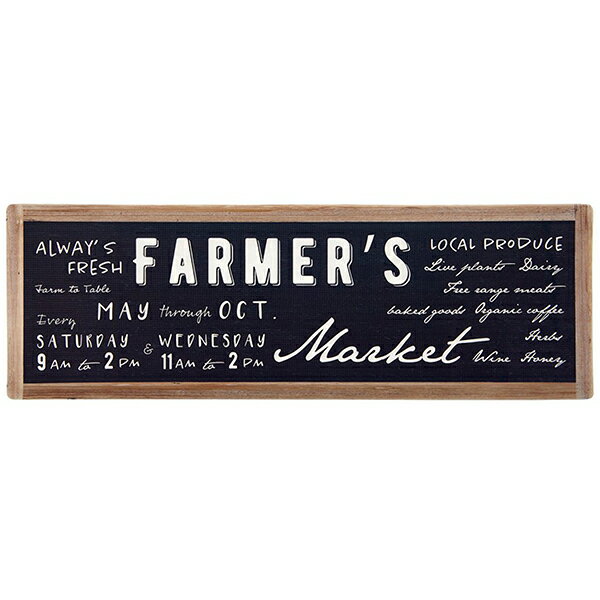 ALWAY'S
FRESH
Farm to Table
FARMER'S
Every MAY through OCT.
SATURDAY & WEDNESDAY
9 AM to 2 PM 11 AM to 2 PM
Market
LOCAL PRODUCE
Live plants Dairy
Free range meats
baked goods Organic coffee
Herbs
Wine Honey